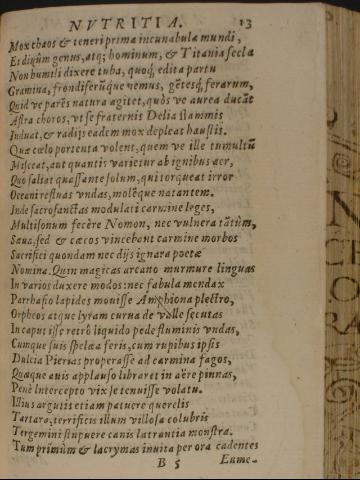 NVTRITIA. 13
Mox chaos & teneri prima incunabula mundi,
Et diuûm genus, atq; hominum, & Titania secla
Non humili dixere tuba, quoq; edita partu
Gramina, frondiferũque nemus, gẽtesq; ferarum,
Quid ve parẽs natura agitet, quòs ve aurea ducãt
Astra choros, vt se fraternis Delia flammis
Induat, & radijs eadem mox depleat haustis.
Quæ cœlo portenta volent, quem ve ille tumultũ
Misceat, aut quantis varietur ab ignibus aer,
Quo saliat quassante solum, qui torqueat irror
Oceani refluas vndas, molẽque natantem.
Inde sacrosanctas modulati carmine leges,
Multisonum fecêre Nomon, nec vulnera tãtùm,
Saua, sed & cæcos vincebant carmine morbos
Sacrifici quondam nec dijs ignara poetæ
Nomina. Quin magicas arcano murmure linguas
In varios duxere modos: nec fabula mendax
Parrhasio lapides mouisse Amphiona plectro,
Orpheos atque lyram curua de valle secutas
In caput isse retrò liquido pede fluminis vndas,
Cumque suis spelæa feris, cum rupibus ipsis
Dulcia Pierias properasse ad carmina fagos,
Quaque auis applauso libraret in aëre pinnas,
Penè intercepto vix se tenuisse volatu.
Illius argutis etiam patuere querelis
Tartara, terrificis illum villosa colubris
Tergemini stupuere canis latrantia monstra.
Tum primùm & lacrymas inuita per ora cadentes
B 5 Eume-